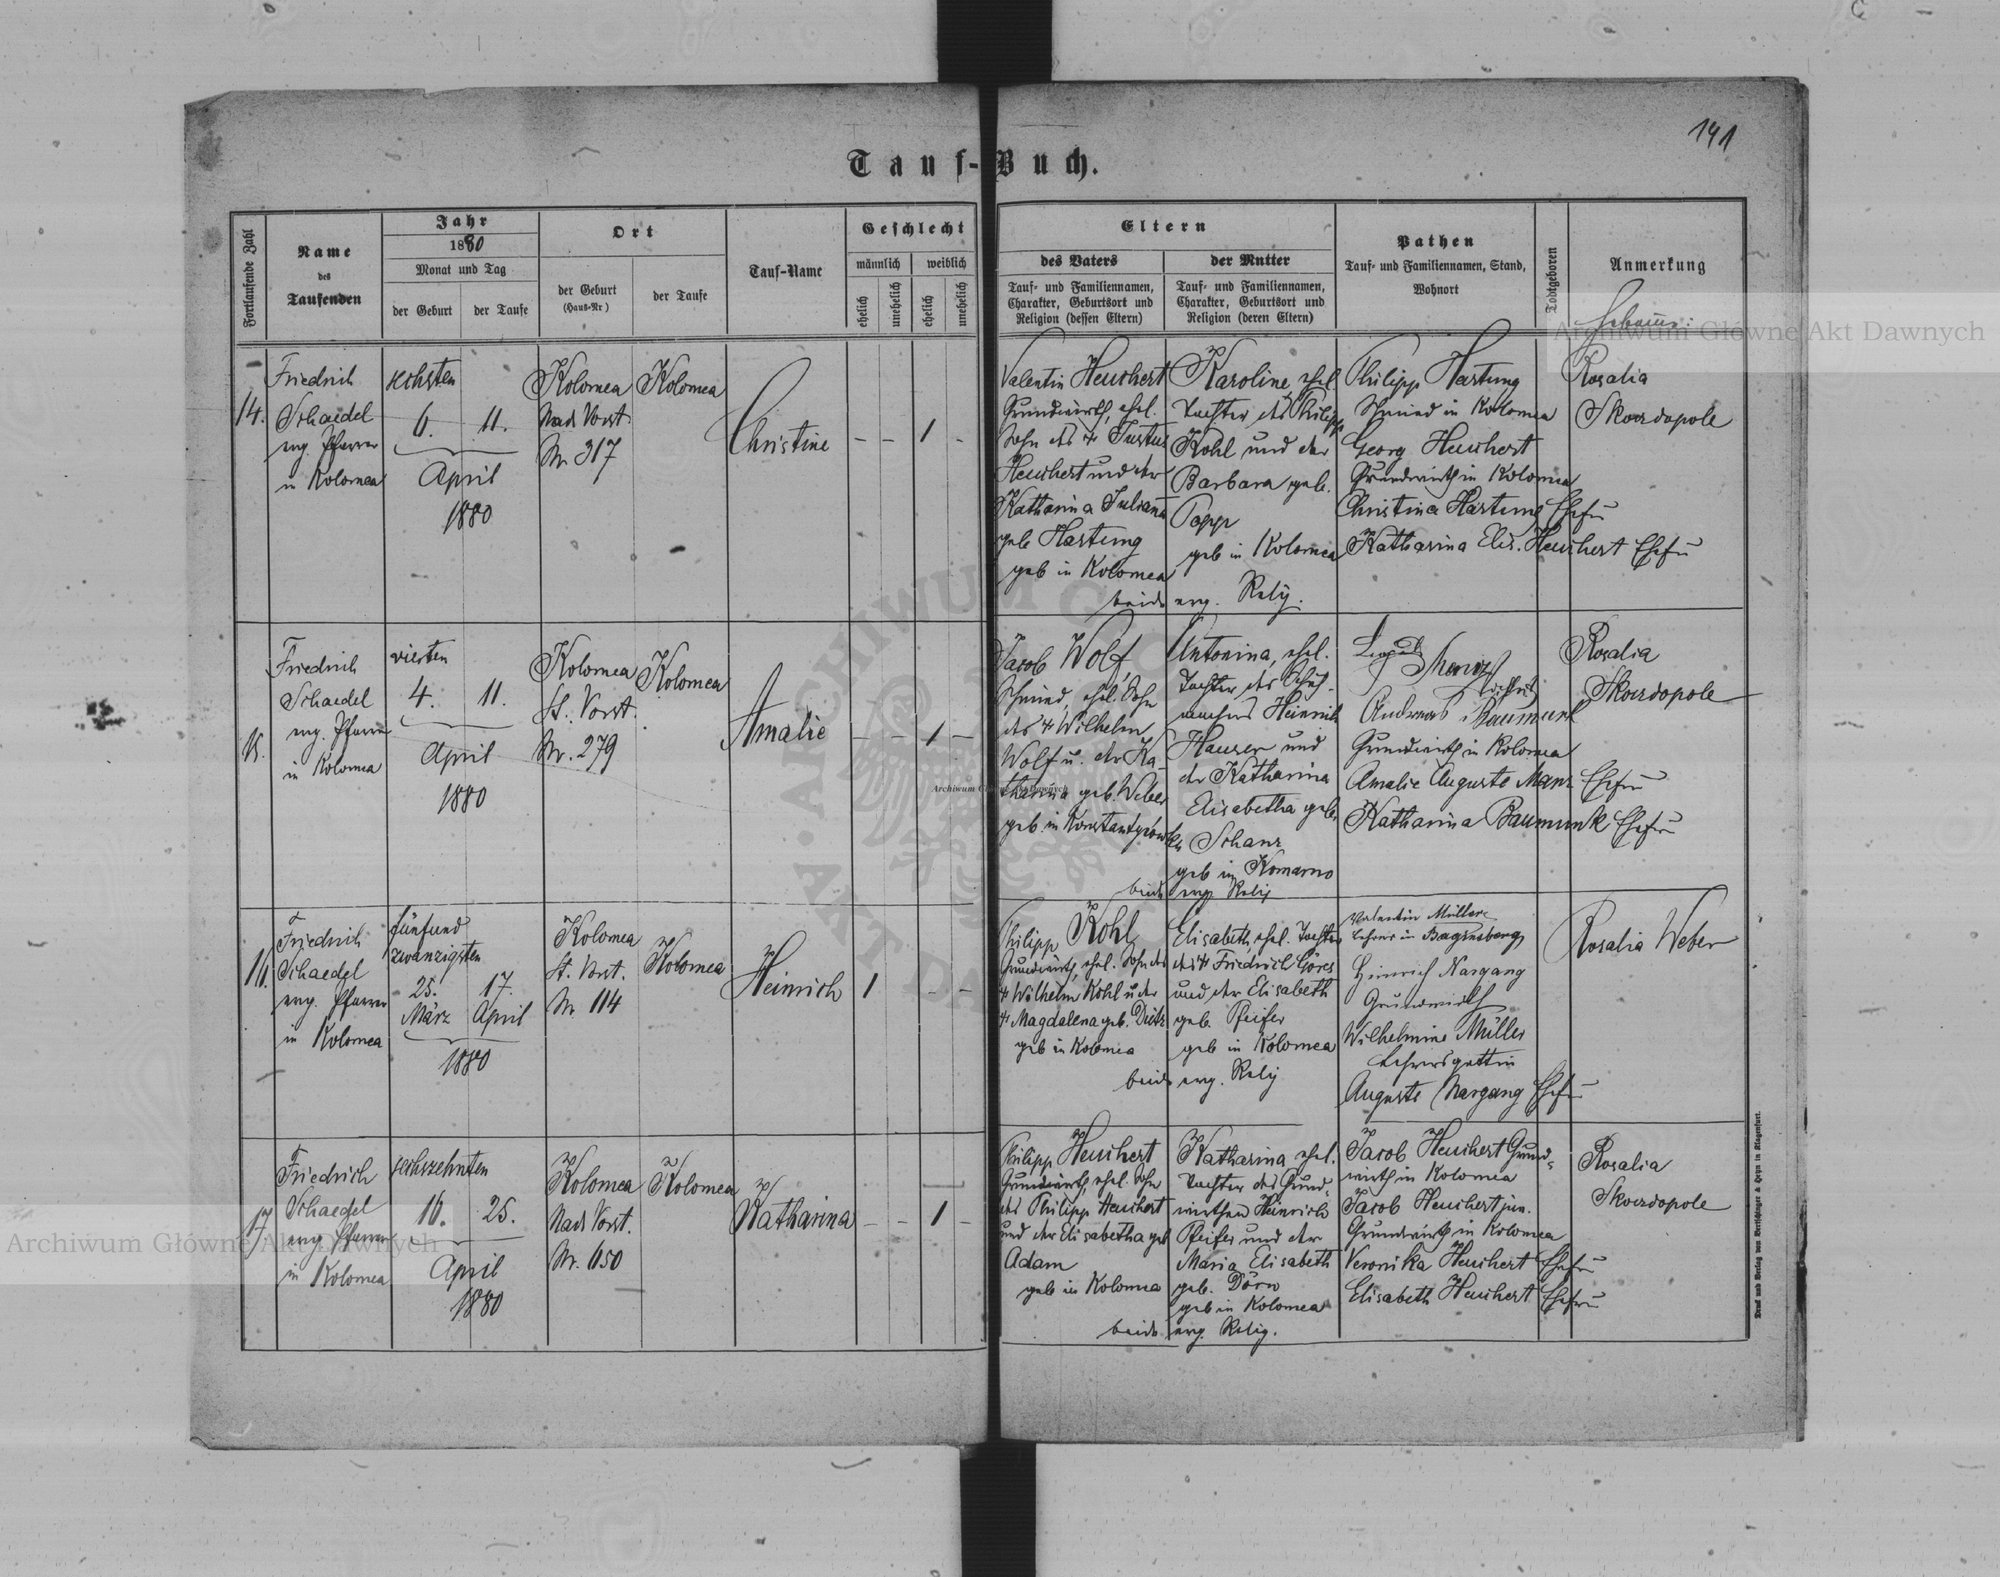 141
Tauf-Buch.
Fortlaufende Zahl
Name
des
Taufenden
Jahr
1880
Monat und Tag
der Geburt
der Taufe
Ort
der Geburt
(Haus-Nr)
der Taufe
Tauf-Name
Geschlecht
männlich
weiblich
ehelich
unehelich
ehelich
unehelich
Eltern
des Vaters
Tauf- und Familiennamen,
Charakter, Geburtsort und
Religion (dessen Eltern)
der Mutter
Tauf- und Familiennamen,
Charakter, Geburtsort und
Religion (deren Eltern)
Pathen
Tauf- und Familiennamen, Stand,
Wohnort
Todtgeboren
Anmerkung
Hebamme:
14.
Friedrich
Schaedel
evg. Pfarrer
in Kolomea
sechsten
6. 11.
April
1880
Kolomea
Nad Vorst.
Nr. 317
Kolomea
Christine
– – 1 –
Valentin Heuchert
Grundwirth, ehel.
Sohn des + Justus
Heuchert und der
Katharina Juliana
geb Hartung
geb in Kolomea
beide
Karoline, ehel.
Tochter des Philipp
Kohl und der
Barbara geb.
Popp
geb in Kolomea
evg. Relig.
Philipp Hartung
Schmied in Kolomea
Georg Heuchert
Grundwirth in Kolomea
Christina Hartung Ehefr
Katharina Elis. Heuchert Ehefr
Rosalia
Skordopole
15.
Friedrich
Schaedel
evg. Pfarrer
in Kolomea
vierten
4. 11.
April
1880
Kolomea
St. Vorst.
Nr. 279
Kolomea
Amalie
– – 1 –
Jacob Wolf,
Schmied, ehel. Sohn
des + Wilhelm
Wolf u. der Ka-
tharina geb. Weber
geb. in
beide
Antonina, ehel.
Tochter des Schuh-
machers Heinrich
Hauser und
der Katharina
Elisabetha geb.
Schanz
geb in Komarno
evg. Relig
Andreas Baumunk
Grundwirth in Kolomea
Amalie Auguste Manz Ehefr
Katharina Baumunk Ehefr
Rosalia
Skordopole
16.
Friedrich
Schaedel
evg. Pfarrer
in Kolomea
fünfund
zwanzigsten
25. 17.
März April
1880
Kolomea
St. Vorst.
Nr. 114
Kolomea
Heinrich
1 – –
Philipp Kohl
Grundwirth, ehel. Sohn des
+ Wilhelm Kohl u der
+ Magdalena geb. Dietz
geb in Kolomea
beide
Elisabeth, ehel. Tochter
des + Friedrich Göres
und der Elisabeth
geb. Pfeifer
geb in Kolomea
evg. Relig
Valentin Müller
Lehrer in Baginsberg
Heinrich Nargang
Grundwirth
Wilhelmine Müller
Lehrersgattin
Auguste Nargang Ehefr
Rosalia Weber
17.
Friedrich
Schaedel
evg Pfarrer
in Kolomea
sechszehnten
16. 25.
April
1880
Kolomea
Nad Vorst.
Nr. 650
Kolomea
Katharina
– – 1 –
Philipp Heuchert
Grundwirth, ehel. Sohn
des Philipp Heuchert
und der Elisabetha geb
Adam
geb in Kolomea
beide
Katharina ehel.
Tochter des Grund-
wirthen Heinrich
Pfeifer und der
Maria Elisabeth
geb. Dörn
geb in Kolomea
evg. Relig.
Jacob Heuchert Grund-
wirth in Kolomea
Jacob Heuchert jun.
Grundwirth in Kolomea
Veronika Heuchert Ehefr
Elisabeth Heuchert Ehefr
Rosalia
Skordopole
Druck und Verlag von Bertschinger & Heyn in Klagenfurt.
Archiwum Główne Akt Dawnych
Archiwum Główne Akt Dawnych
Archiwum Główne Akt Dawnych